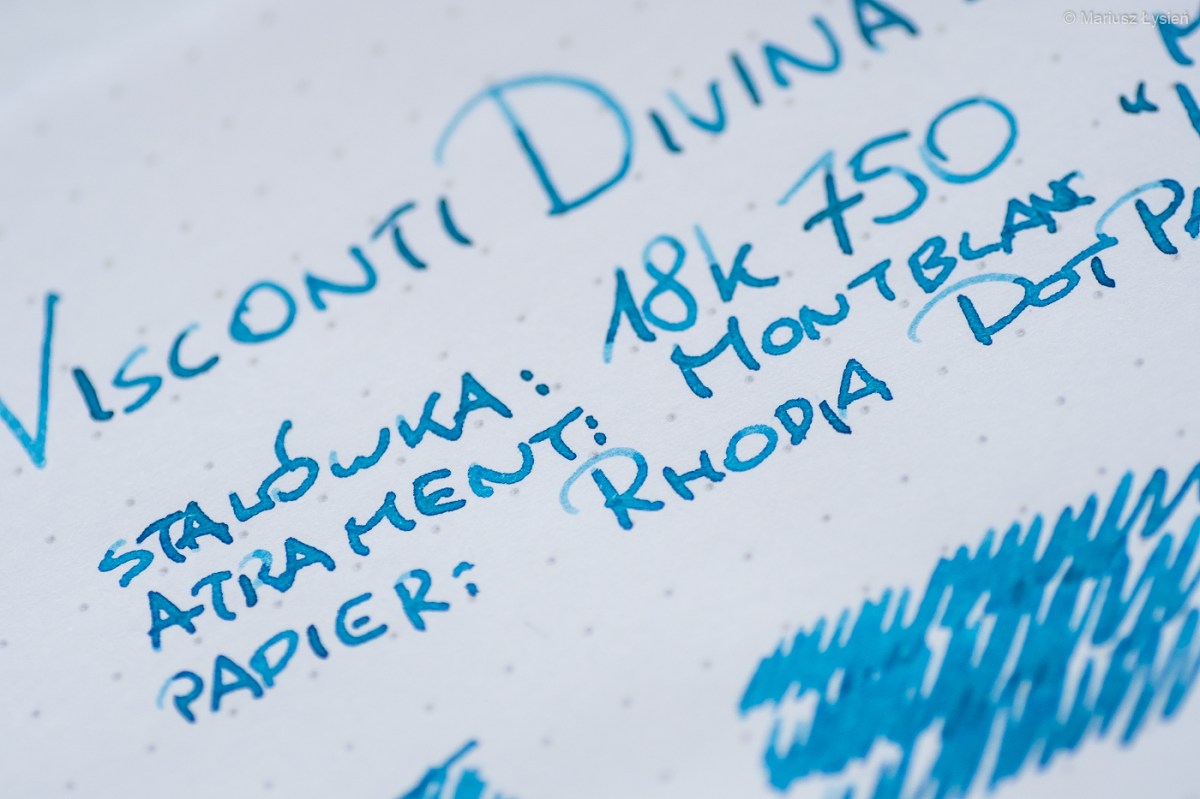 © Mariusz Łysień
VISCONTI DIVINA
STALÓWKA: 18K 750
ATRAMENT: MONTBLANC "
PAPIER: RHODIA DOT